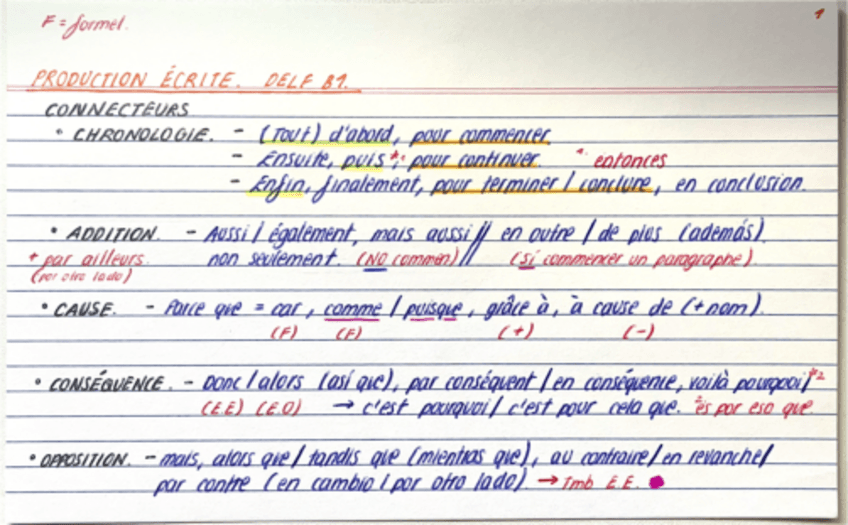 F = formel.
1
PRODUCTION ÉCRITE. DELF B1.
CONNECTEURS
• CHRONOLOGIE. - (Tout) d'abord, pour commencer.
- Ensuite, puis *¹ pour continuer. *¹ entonces
- Enfin, finalement, pour terminer / conclure, en conclusion.
• ADDITION. - Aussi / également, mais aussi // en outre / de plus (además).
+ par ailleurs. non seulement. (NO commen) // (sí commencer un paragraphe).
(por otro lado)
• CAUSE. - Parce que = car, comme / puisque, grâce à, à cause de (+nom).
(F) (F) (+) (-)
• CONSÉQUENCE. - Donc / alors (así que), par conséquent / en conséquence, voilà pourquoi / *2
(E.E) (E.O) → c'est pourquoi / c'est pour cela que. *es por eso que
• OPPOSITION. - mais, alors que / tandis que (mientras que), au contraire / en revanche /
par contre (en cambio / por otro lado) → Tmb E.E.